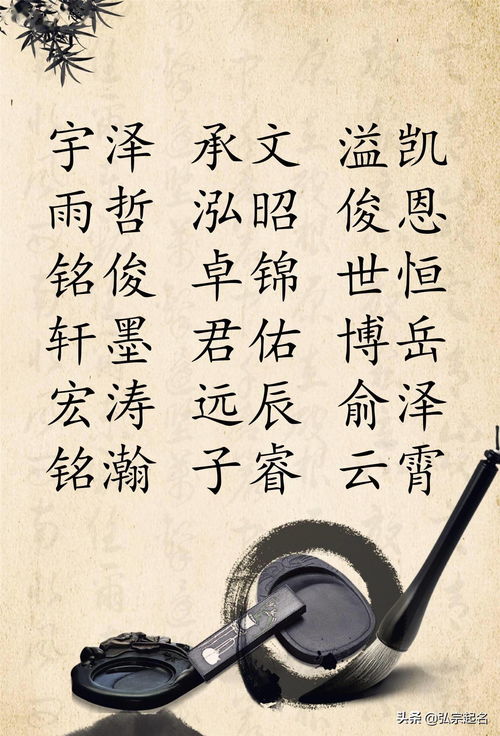 宇泽 承文 溢凯
雨哲 泓昭 俊恩
铭俊 卓锦 世恒
轩墨 君佑 博岳
宏涛 远辰 俞泽
铭瀚 子睿 云霄
头条 @弘宗起名